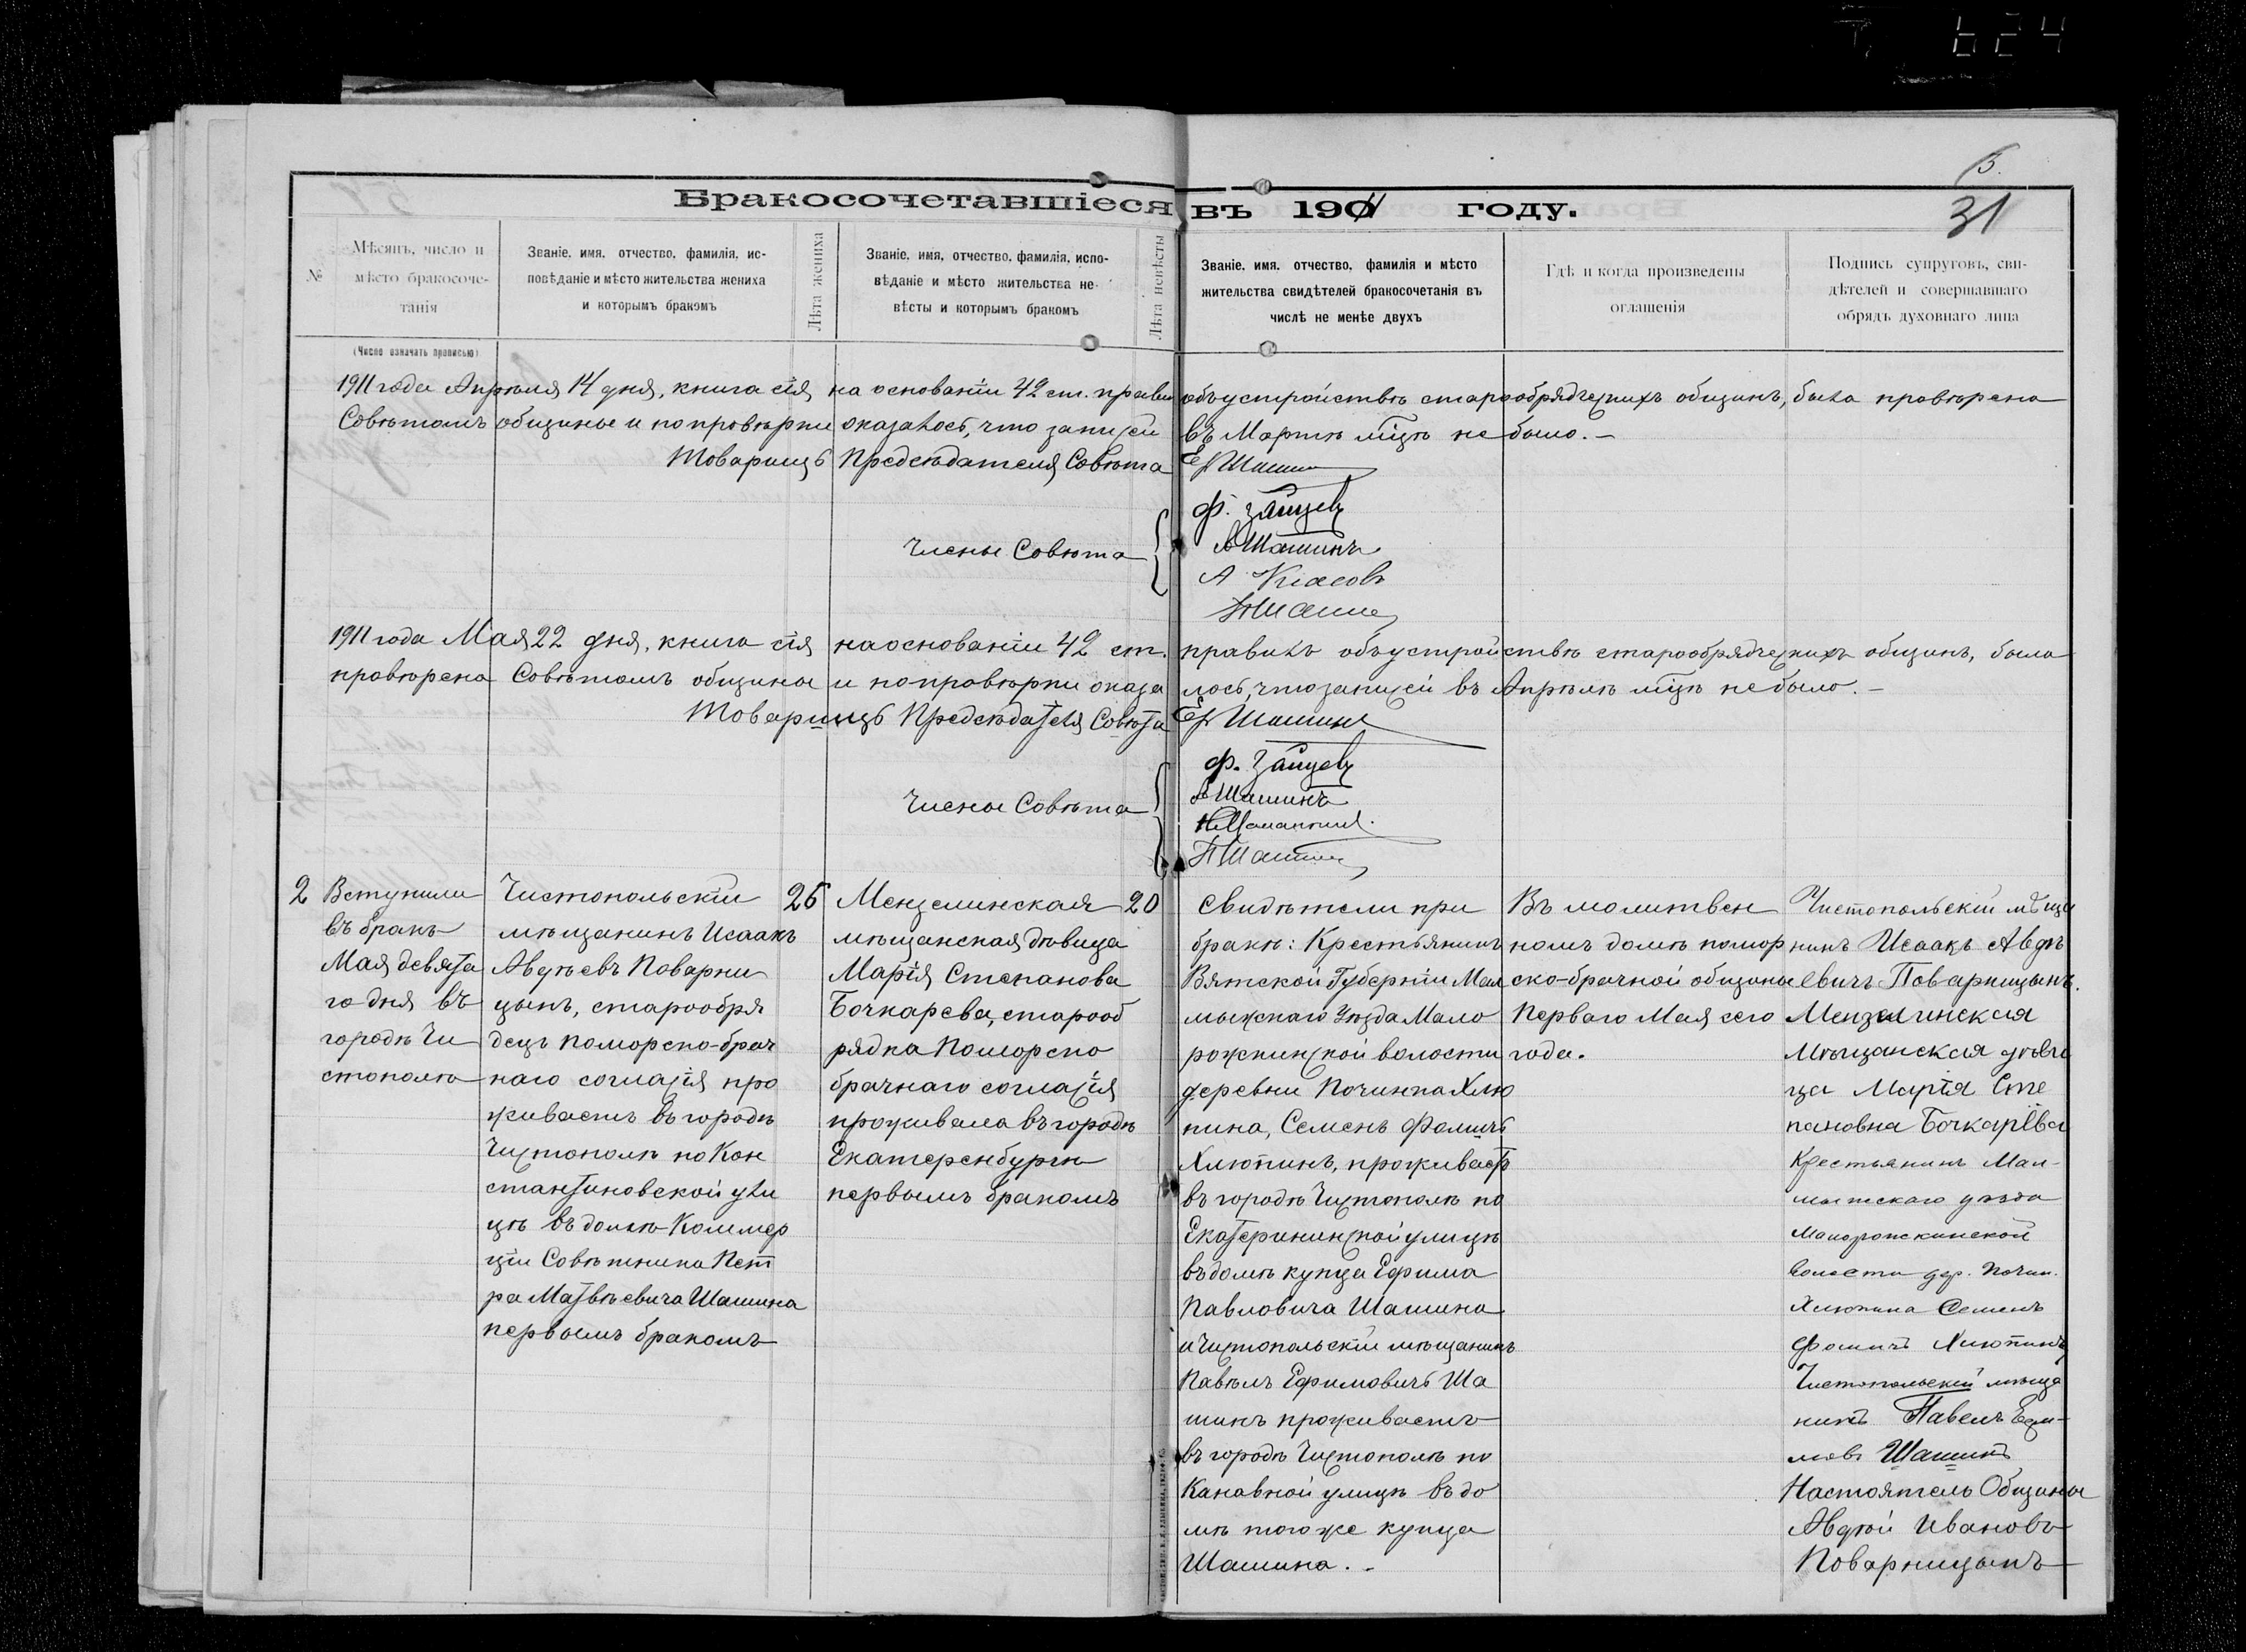 624
5.
31
Бракосочетавшіеся въ 1911 году.
№
Мѣсяцъ, число и
мѣсто бракосоче-
танія
(Число означать прописью)
Званіе, имя, отчество, фамилія, ис-
повѣданіе и мѣсто жительства жениха
и которымъ бракомъ
Лѣта жениха
Званіе, имя, отчество, фамилія, испо-
вѣданіе и мѣсто жительства не-
вѣсты и которымъ бракомъ
Лѣта невѣсты
Званіе, имя, отчество, фамилія и мѣсто
жительства свидѣтелей бракосочетанія въ
числѣ не менѣе двухъ
Гдѣ и когда произведены
оглашенія
Подпись супруговъ, сви-
дѣтелей и совершавшаго
обрядъ духовнаго лица
1911 года Апрѣля 14 дня, книга сія, на основаніи 42 ст. правил объ устройствѣ старообрядческихъ общинъ, была провѣрена
Совѣтомъ общины и по провѣрки оказалось, что записей въ Мартѣ мѣсцѣ не было. –
Товарищъ Предсѣдателя Совѣта Еф Шашин
Члены Совѣта
Ф. Зайцевъ
А Шашинъ
А Класовъ
П Шашин
1911 года Мая 22 дня, книга сія на основаніи 42 ст. правилъ объ устройствѣ старообрядческихъ общинъ, была
провѣрена Совѣтомъ общины и по провѣрки оказалось, что записей въ Апрѣлѣ мѣсцѣ не было. –
Товарищъ Предсѣдателя Совѣта Еф Шашин
Члены Совѣта
Ф. Зайцевъ
А Шашинъ
П Шашин
2
Вступили
въ бракъ
Мая девята
го дня въ
городѣ Чи
стополѣ
Чистопольскій
мѣщанинъ Исаакъ
Авдѣевъ Поварни
цынъ, старообря
децъ поморско-брач
наго согласія про
живаетъ въ городѣ
Чистополѣ по Кон
стантиновской ули
цѣ въ домѣ Коммер
ціи Совѣтника Пет
ра Матвѣевича Шашина
первымъ бракомъ
26
Мензелинская
мѣщанская дѣвица
Марія Степанова
Бочкарева, старооб
рядка Поморско
брачнаго согласія
проживала въ городѣ
Екатеренбургѣ
первымъ бракомъ
20
Свидѣтели при
бракѣ: Крестьянинъ
Вятской Губерніи Мал
мыжскаго Уѣзда Мало
рожкинской волости
деревни Починка Хлю
пина, Семенъ Фомичъ
Хлюпинъ, проживаетъ
въ городѣ Чистополѣ по
Екатерининской улицѣ
въ домѣ купца Ефима
Павловича Шашина
и Чистопольскій мѣщанинъ
Павелъ Ефимовичъ Ша
шинъ проживаетъ
въ городѣ Чистополѣ по
Канавной улицѣ въ до
мѣ того же купца
Шашина. –
Въ молитвен
номъ домѣ помор
ско-брачной общины
Перваго Мая сего
года.
Чистопольскій мѣща
нинъ Исаакъ Авдѣ
евичъ Поварницынъ.
Мензелинская
Мѣщанская дѣви
ца Марія Сте
пановна Бочкарёва
Крестьянинъ Мал-
мыжскаго уѣзда
Малорожкинской
волости дер. Почин.
Хлюпина Семенъ
Фомичъ Хлюпинъ
Чистопольскій мѣща
нинъ Павелъ Ефи-
мовъ Шашинъ
Настоятель Общины
Авдѣй Ивановъ
Поварницынъ